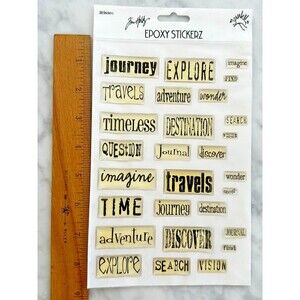 Tim Holtz
EPOXY STICKERZ
journey EXPLORE imagine
FIND
travels adventure wonder
TIMELESS DESTINATION SEARCH
QUESTION Journal discover
imagine travels wonder
TIME Journey destination
adventure DISCOVER JOURNAL
explore SEARCH VISION